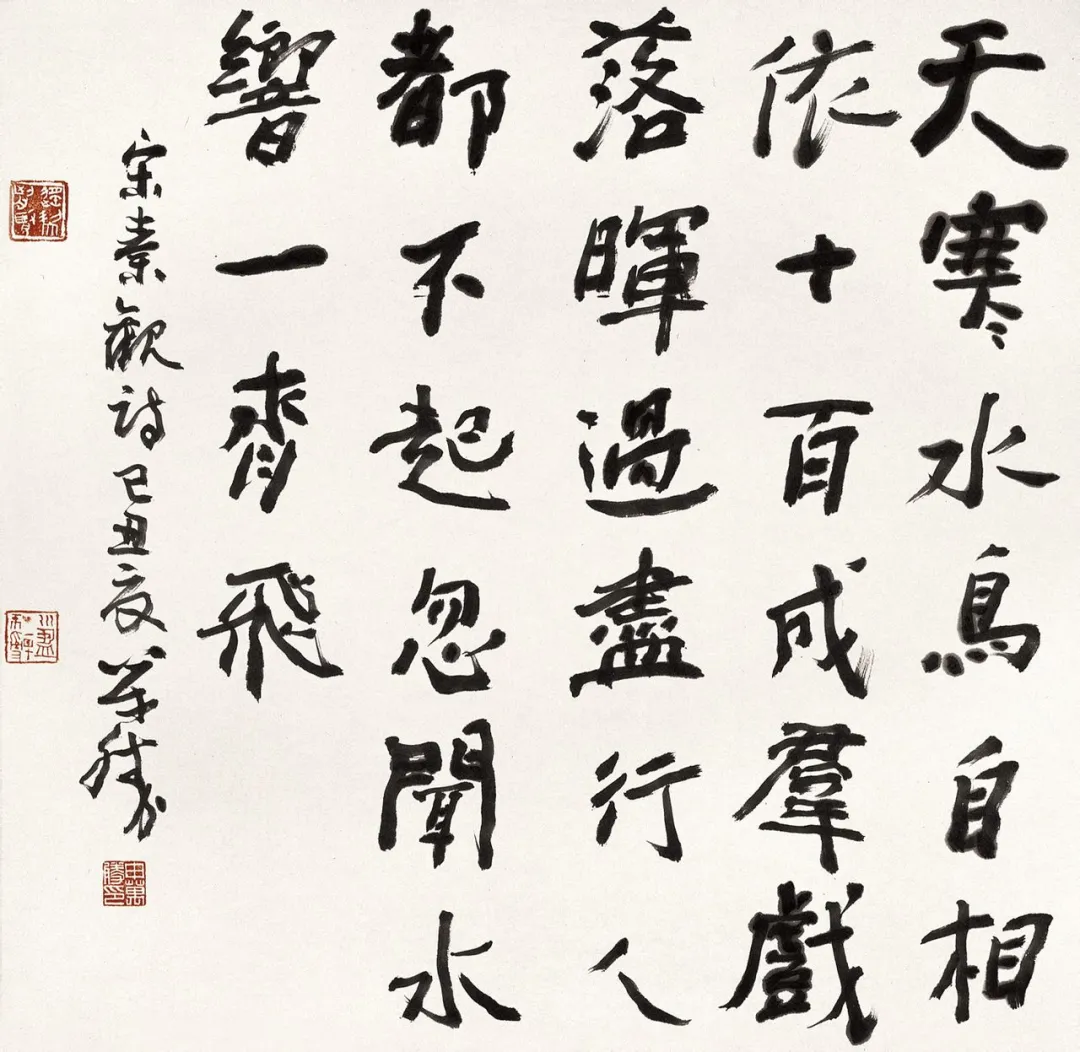 天寒水鳥自相
依十百成羣戲
落暉過盡行人
都不起忽聞水
響一齊飛
宋秦觀詩己丑夏萬勝